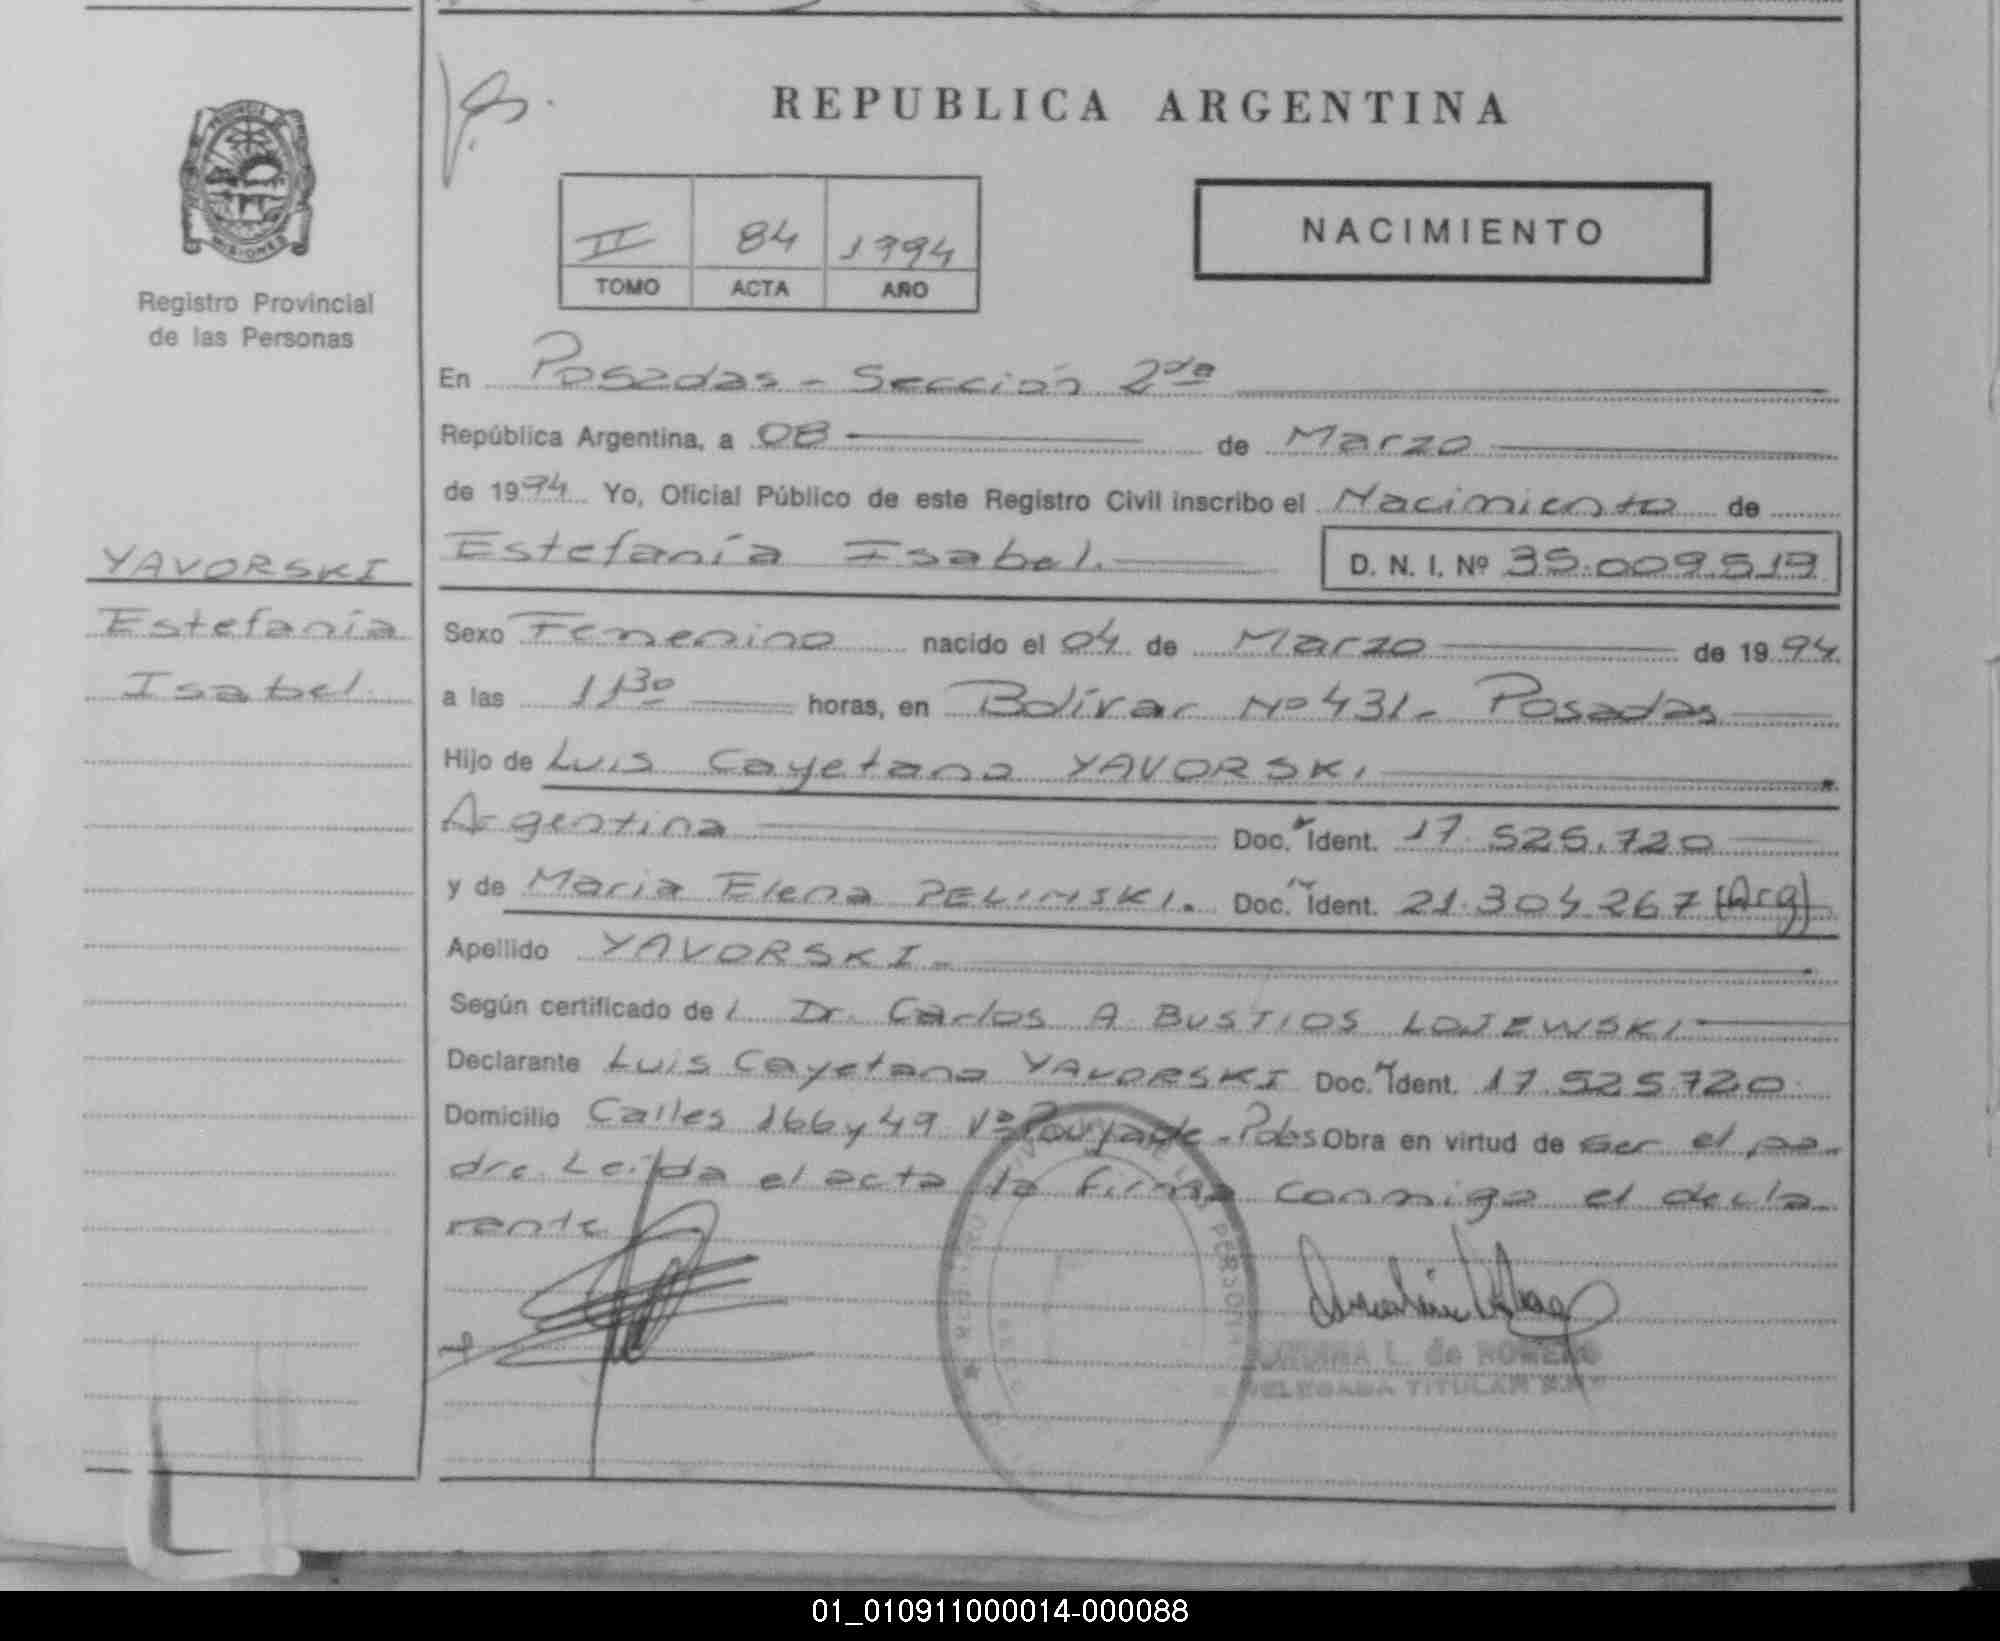 REPUBLICA ARGENTINA
PROVINCIA DE
MISIONES
Registro Provincial
de las Personas
II 84 1994
TOMO ACTA AÑO
NACIMIENTO
En Posadas - Sección 2da
República Argentina, a 08 de Marzo
de 1994 Yo, Oficial Público de este Registro Civil inscribo el Nacimiento de
Estefanía Isabel. D. N. I. Nº 35.009.519
YAVORSKI
Estefanía
Isabel.
Sexo Femenino nacido el 04 de Marzo de 1994
a las 11 30 horas, en Bolívar Nº 431 - Posadas
Hijo de Luis Cayetano YAVORSKI
Argentina Doc. Ident. 17.525.720
y de Maria Elena PELINSKI. Doc. Ident. 21.304.267 (Arg)
Apellido YAVORSKI -
Según certificado del Dr. Carlos A BUSTIOS LOJEWSKI
Declarante Luis Cayetano YAVORSKI Doc. Ident. 17.525.720
Domicilio Calles 166 y 49 Vº Poujade - Pdas Obra en virtud de ser el pa-
dre. Leída el acta la firma conmigo el decla-
rante
L. de ROMERO
DELEGADA TITULAR
01_010911000014-000088